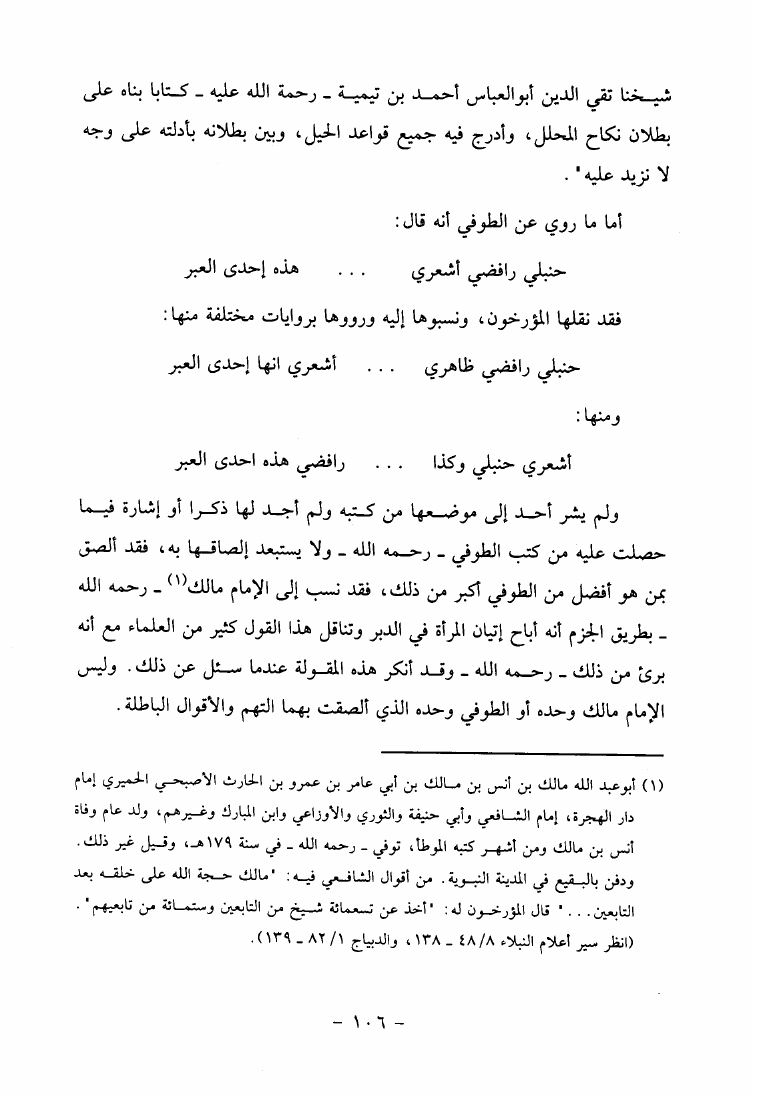 شيخنا تقي الدين أبوالعباس أحمد بن تيمية ـ رحمة الله عليه ـ كتابا بناه على
بطلان نكاح المحلل، وأدرج فيه جميع قواعد الحيل، وبين بطلانه بأدلته على وجه
لا نزيد عليه".
أما ما روي عن الطوفي أنه قال:
حنبلي رافضي أشعري ... هذه إحدى العبر
فقد نقلها المؤرخون، ونسبوها إليه ورووها بروايات مختلفة منها:
حنبلي رافضي ظاهري ... أشعري انها إحدى العبر
ومنها:
أشعري حنبلي وكذا ... رافضي هذه احدى العبر
ولم يشر أحد إلى موضعها من كتبه ولم أجد لها ذكرا أو إشارة فيما
حصلت عليه من كتب الطوفي ـ رحمه الله ـ ولا يستبعد إلصاقها به، فقد ألصق
بمن هو أفضل من الطوفي أكبر من ذلك، فقد نسب إلى الإمام مالك(١) ـ رحمه الله
ـ بطريق الجزم أنه أباح إتيان المرأة في الدبر وتناقل هذا القول كثير من العلماء مع أنه
برئ من ذلك ـ رحمه الله ـ وقد أنكر هذه المقولة عندما سئل عن ذلك. وليس
الإمام مالك وحده أو الطوفي وحده الذي ألصقت بهما التهم والأقوال الباطلة.
(١) أبوعبد الله مالك بن أنس بن مالك بن أبي عامر بن عمرو بن الحارث الأصبحي الحميري إمام
دار الهجرة، إمام الشافعي وأبي حنيفة والثوري والأوزاعي وابن المبارك وغيرهم، ولد عام وفاة
أنس بن مالك ومن أشهر كتبه الموطأ، توفي ـ رحمه الله ـ في سنة ١٧٩هـ، وقيل غير ذلك.
ودفن بالبقيع في المدينة النبوية. من أقوال الشافعي فيه: "مالك حجة الله على خلقه بعد
التابعين..." قال المؤرخون له: "أخذ عن تسعمائة شيخ من التابعين وستمائة من تابعيهم".
(انظر سير أعلام النبلاء ٤٨/٨ ـ ١٣٨، والديباج ٨٢/١ ـ ١٣٩).
ـ ١٠٦ ـ